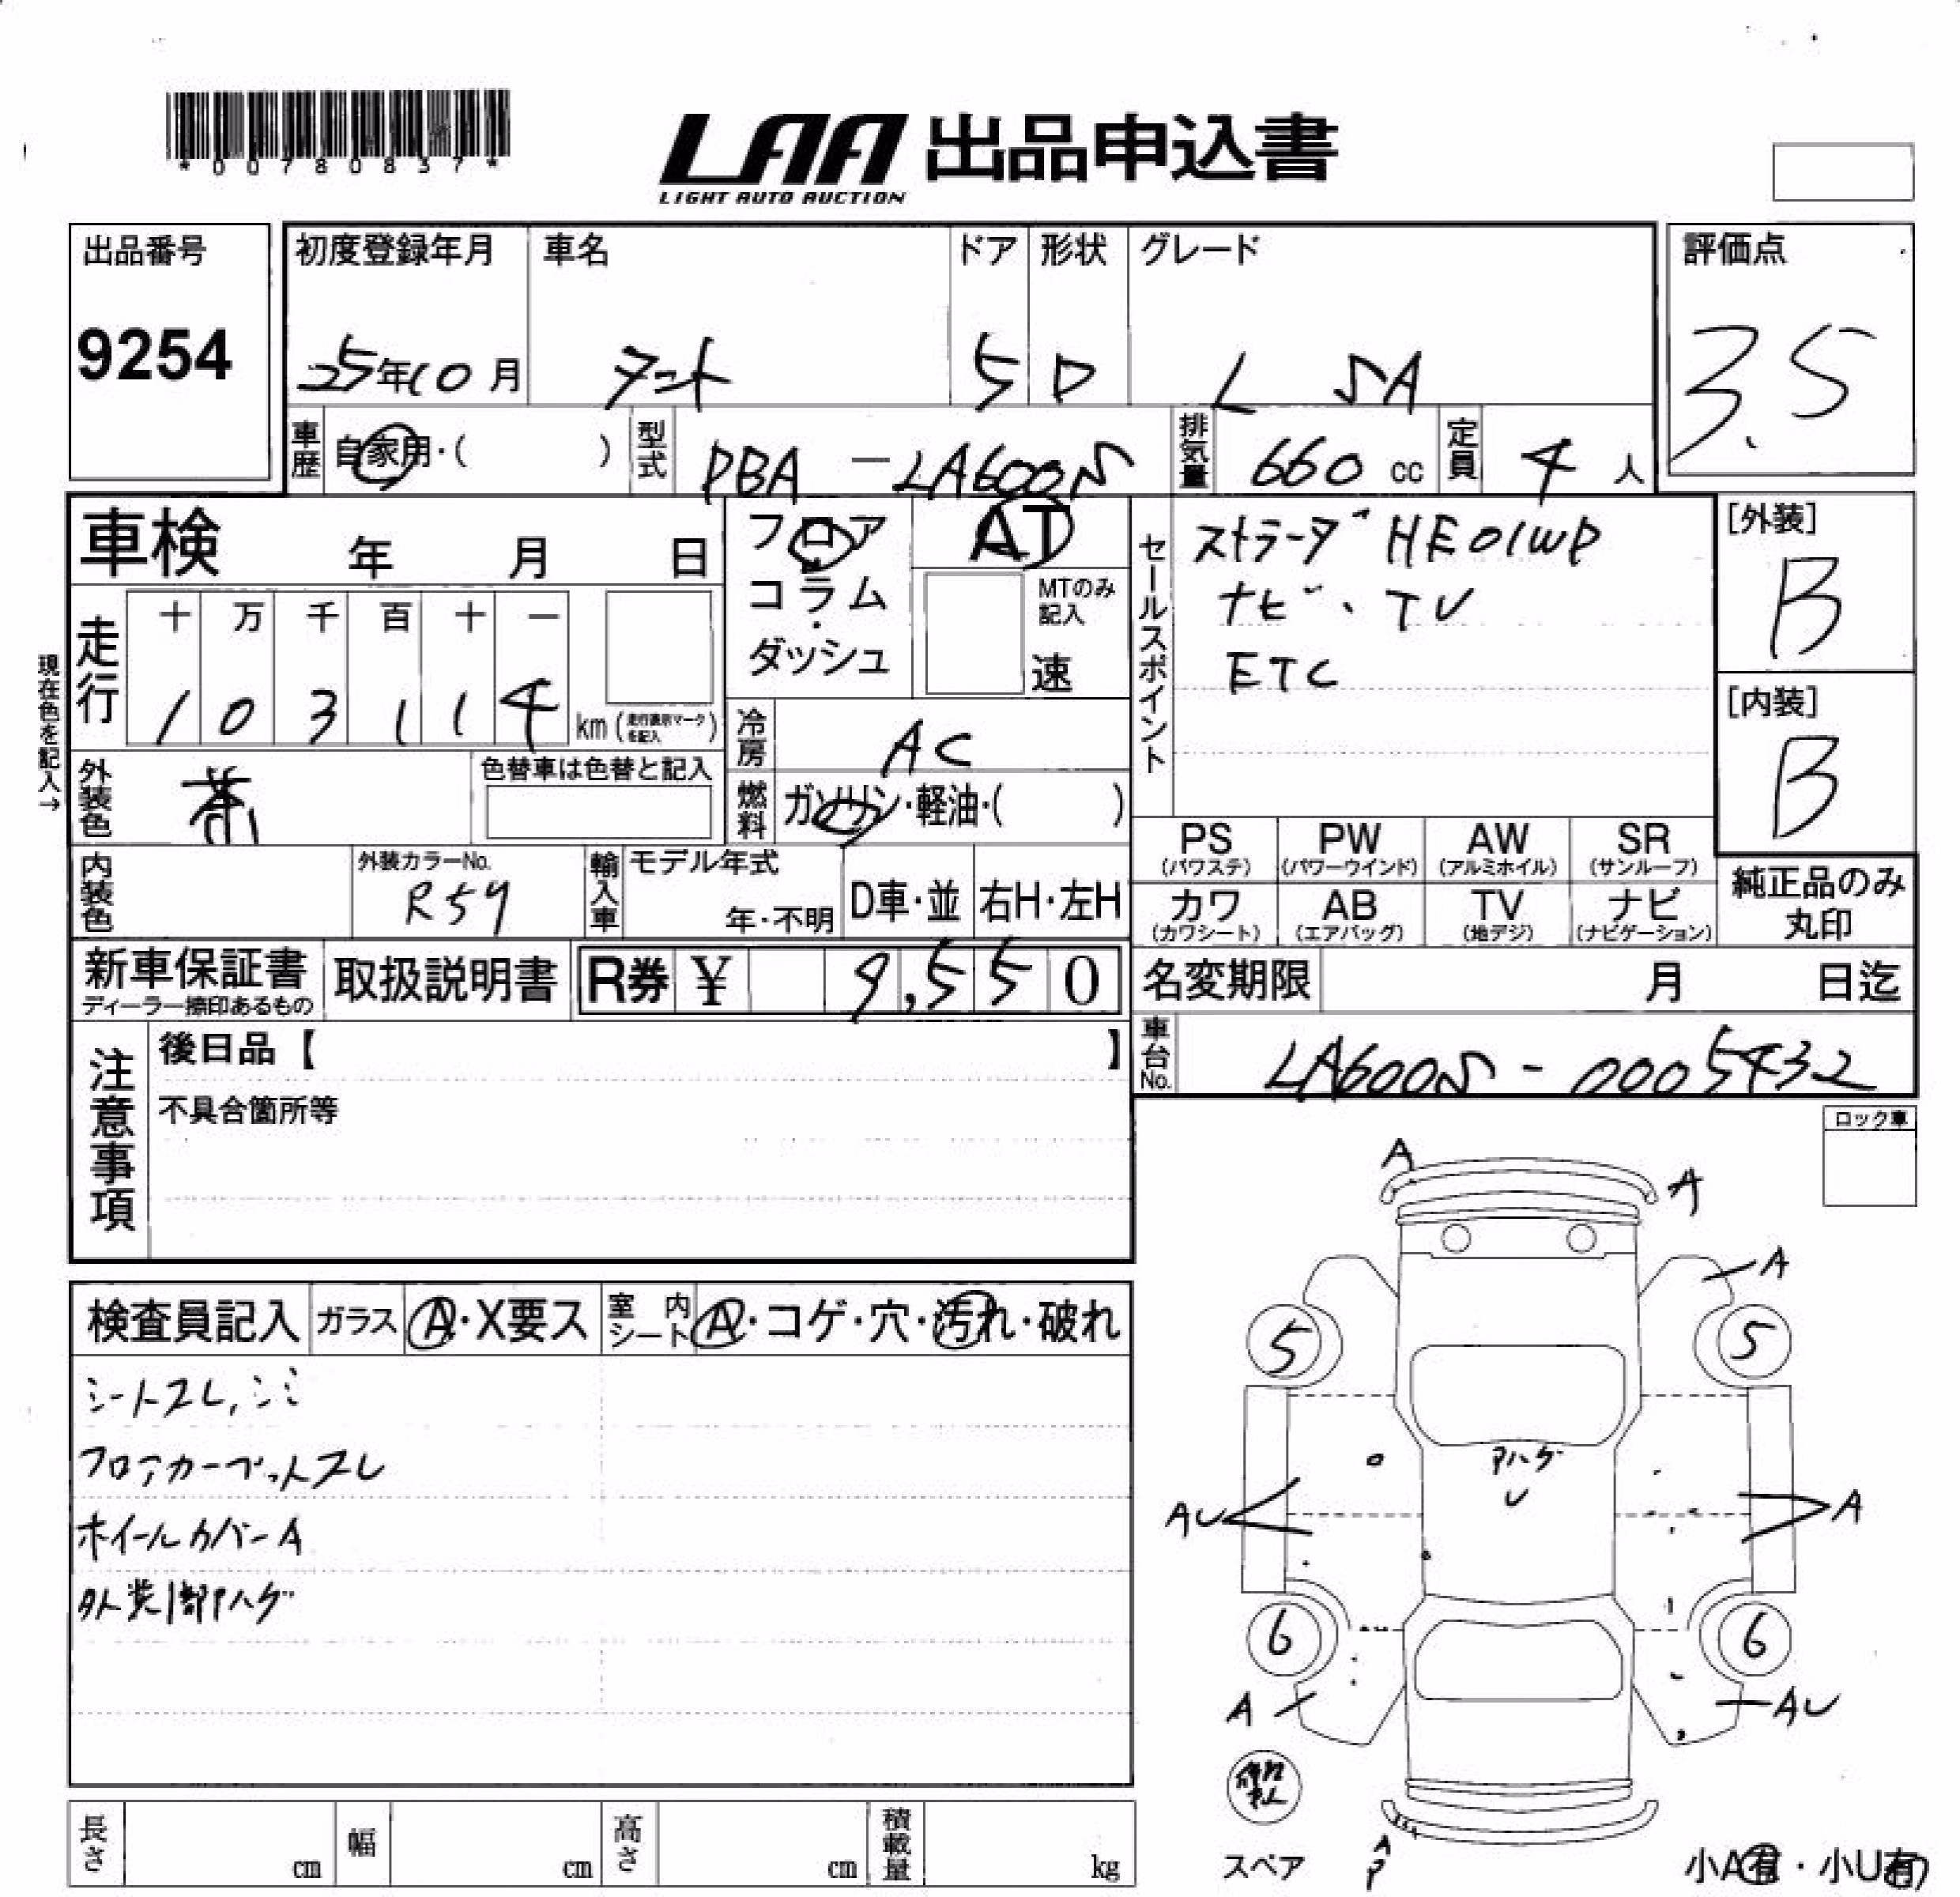 *00780837*
LAA 出品申込書
LIGHT AUTO AUCTION
出品番号
9254
初度登録年月
25年10月
車名
タント
ドア
5
形状
D
グレード
L SA
評価点
3.5
車歴
自家用・( )
型式
PBA-LA600S
排気量
660 cc
定員
4 人
車検 年 月 日
フロア
コラム
・
ダッシュ
AT
MTのみ
記入
速
セールスポイント
ストラーダ HE01WD
ナビ、TV
ETC
[外装]
B
[内装]
B
現在色を記入→
走行
十 万 千 百 十 一
1 0 3 1 1 4
km (走行表示マークを記入)
冷房
AC
外装色
茶
色替車は色替と記入
燃料
ガソリン・軽油・( )
PS
(パワステ)
PW
(パワーウインド)
AW
(アルミホイル)
SR
(サンルーフ)
カワ
(カワシート)
AB
(エアバッグ)
TV
(地デジ)
ナビ
(ナビゲーション)
純正品のみ
丸印
内装色
外装カラーNo.
R59
輸入車
モデル年式
年・不明
D車・並
右H・左H
新車保証書
ディーラー捺印あるもの
取扱説明書
R券 ¥ 9,550
名変期限 月 日迄
車台No.
LA600S-0005432
注意事項
後日品【 】
不具合箇所等
ロック車
検査員記入
ガラス
A・X要ス
室内シート
A・コゲ・穴・汚れ・破れ
シートスレ,シミ
フロアカーペットスレ
ホイールカバーA
外装1部Pハゲ
A
A
A
5
5
Pハゲ
U
AU
A
6
6
A
AU
スペア
A
P
小A有・小U有
長さ cm
幅 cm
高さ cm
積載量 kg